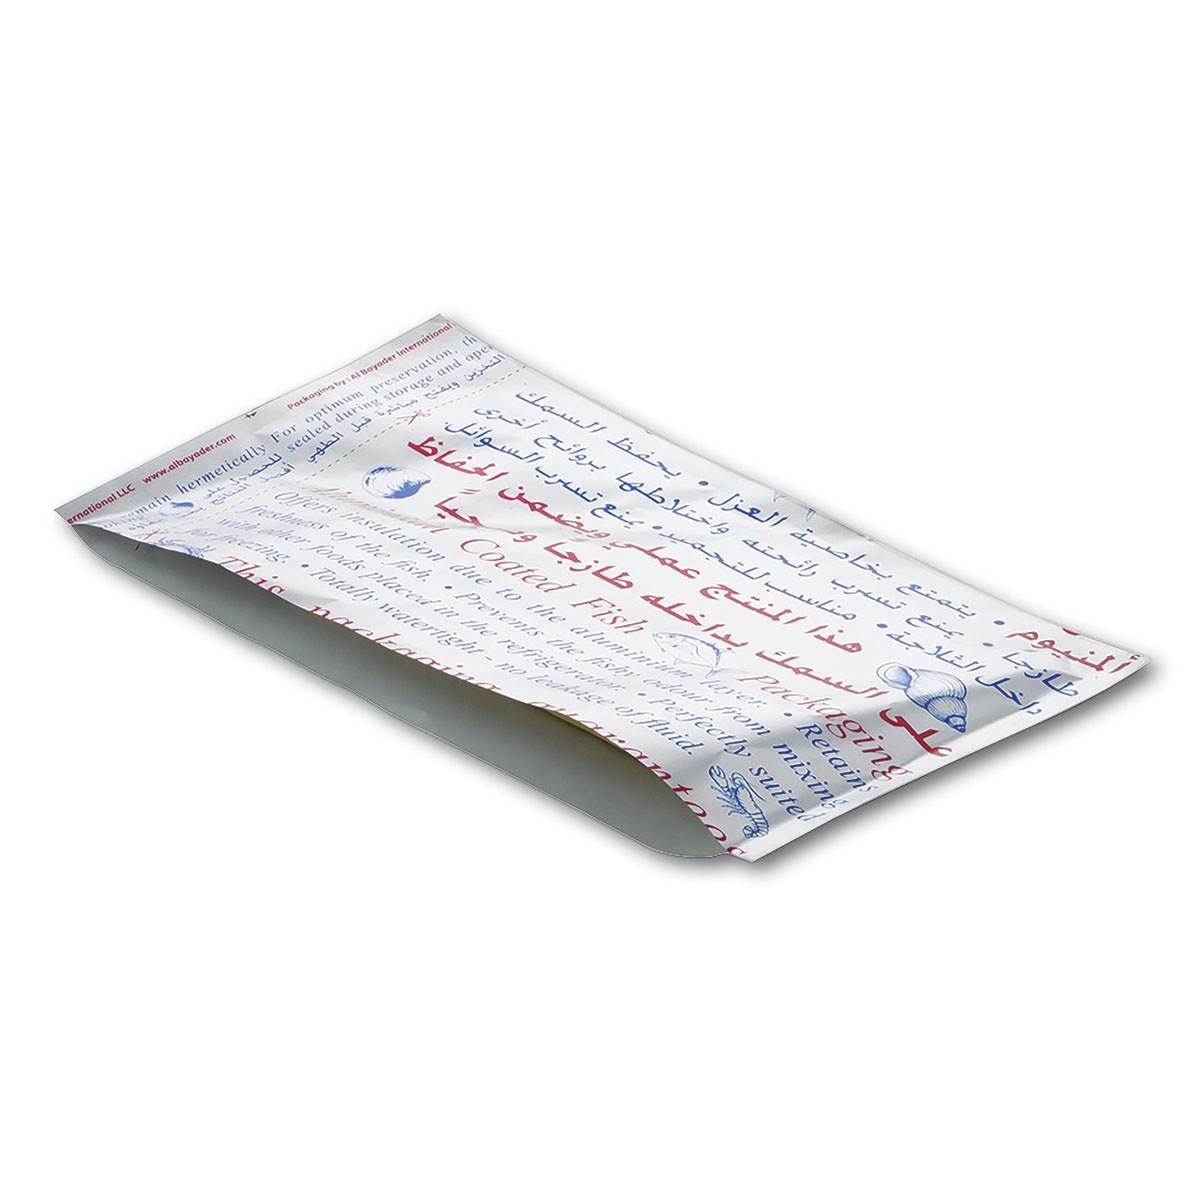 Packaging by : Al Bayader International
ernational LLC www.albayader.com
For optimum preservation, th
main hermetically sealed during storage and ope
التخزين ويفتح مباشرة قبل الطهي
للحصول على
Coated Fish Packaging
Offers insulation due to the aluminium layer. • Retains
freshness of the fish. • Prevents the fishy odour from mixing
with other foods placed in the refrigerator. • Perfectly suited
for freezing • Totally watertight - no leakage of fluid.
This packaging guarantees
ألمنيوم • يتمتع بخاصية العزل • يحفظ السمك
طازجا • يمنع تسرب رائحته واختلاطها بروائح أخرى
داخل الثلاجة • مناسب للتجميد • يمنع تسرب السوائل
هذا المنتج عملي ويضمن الحفاظ
على السمك بداخله طازجا